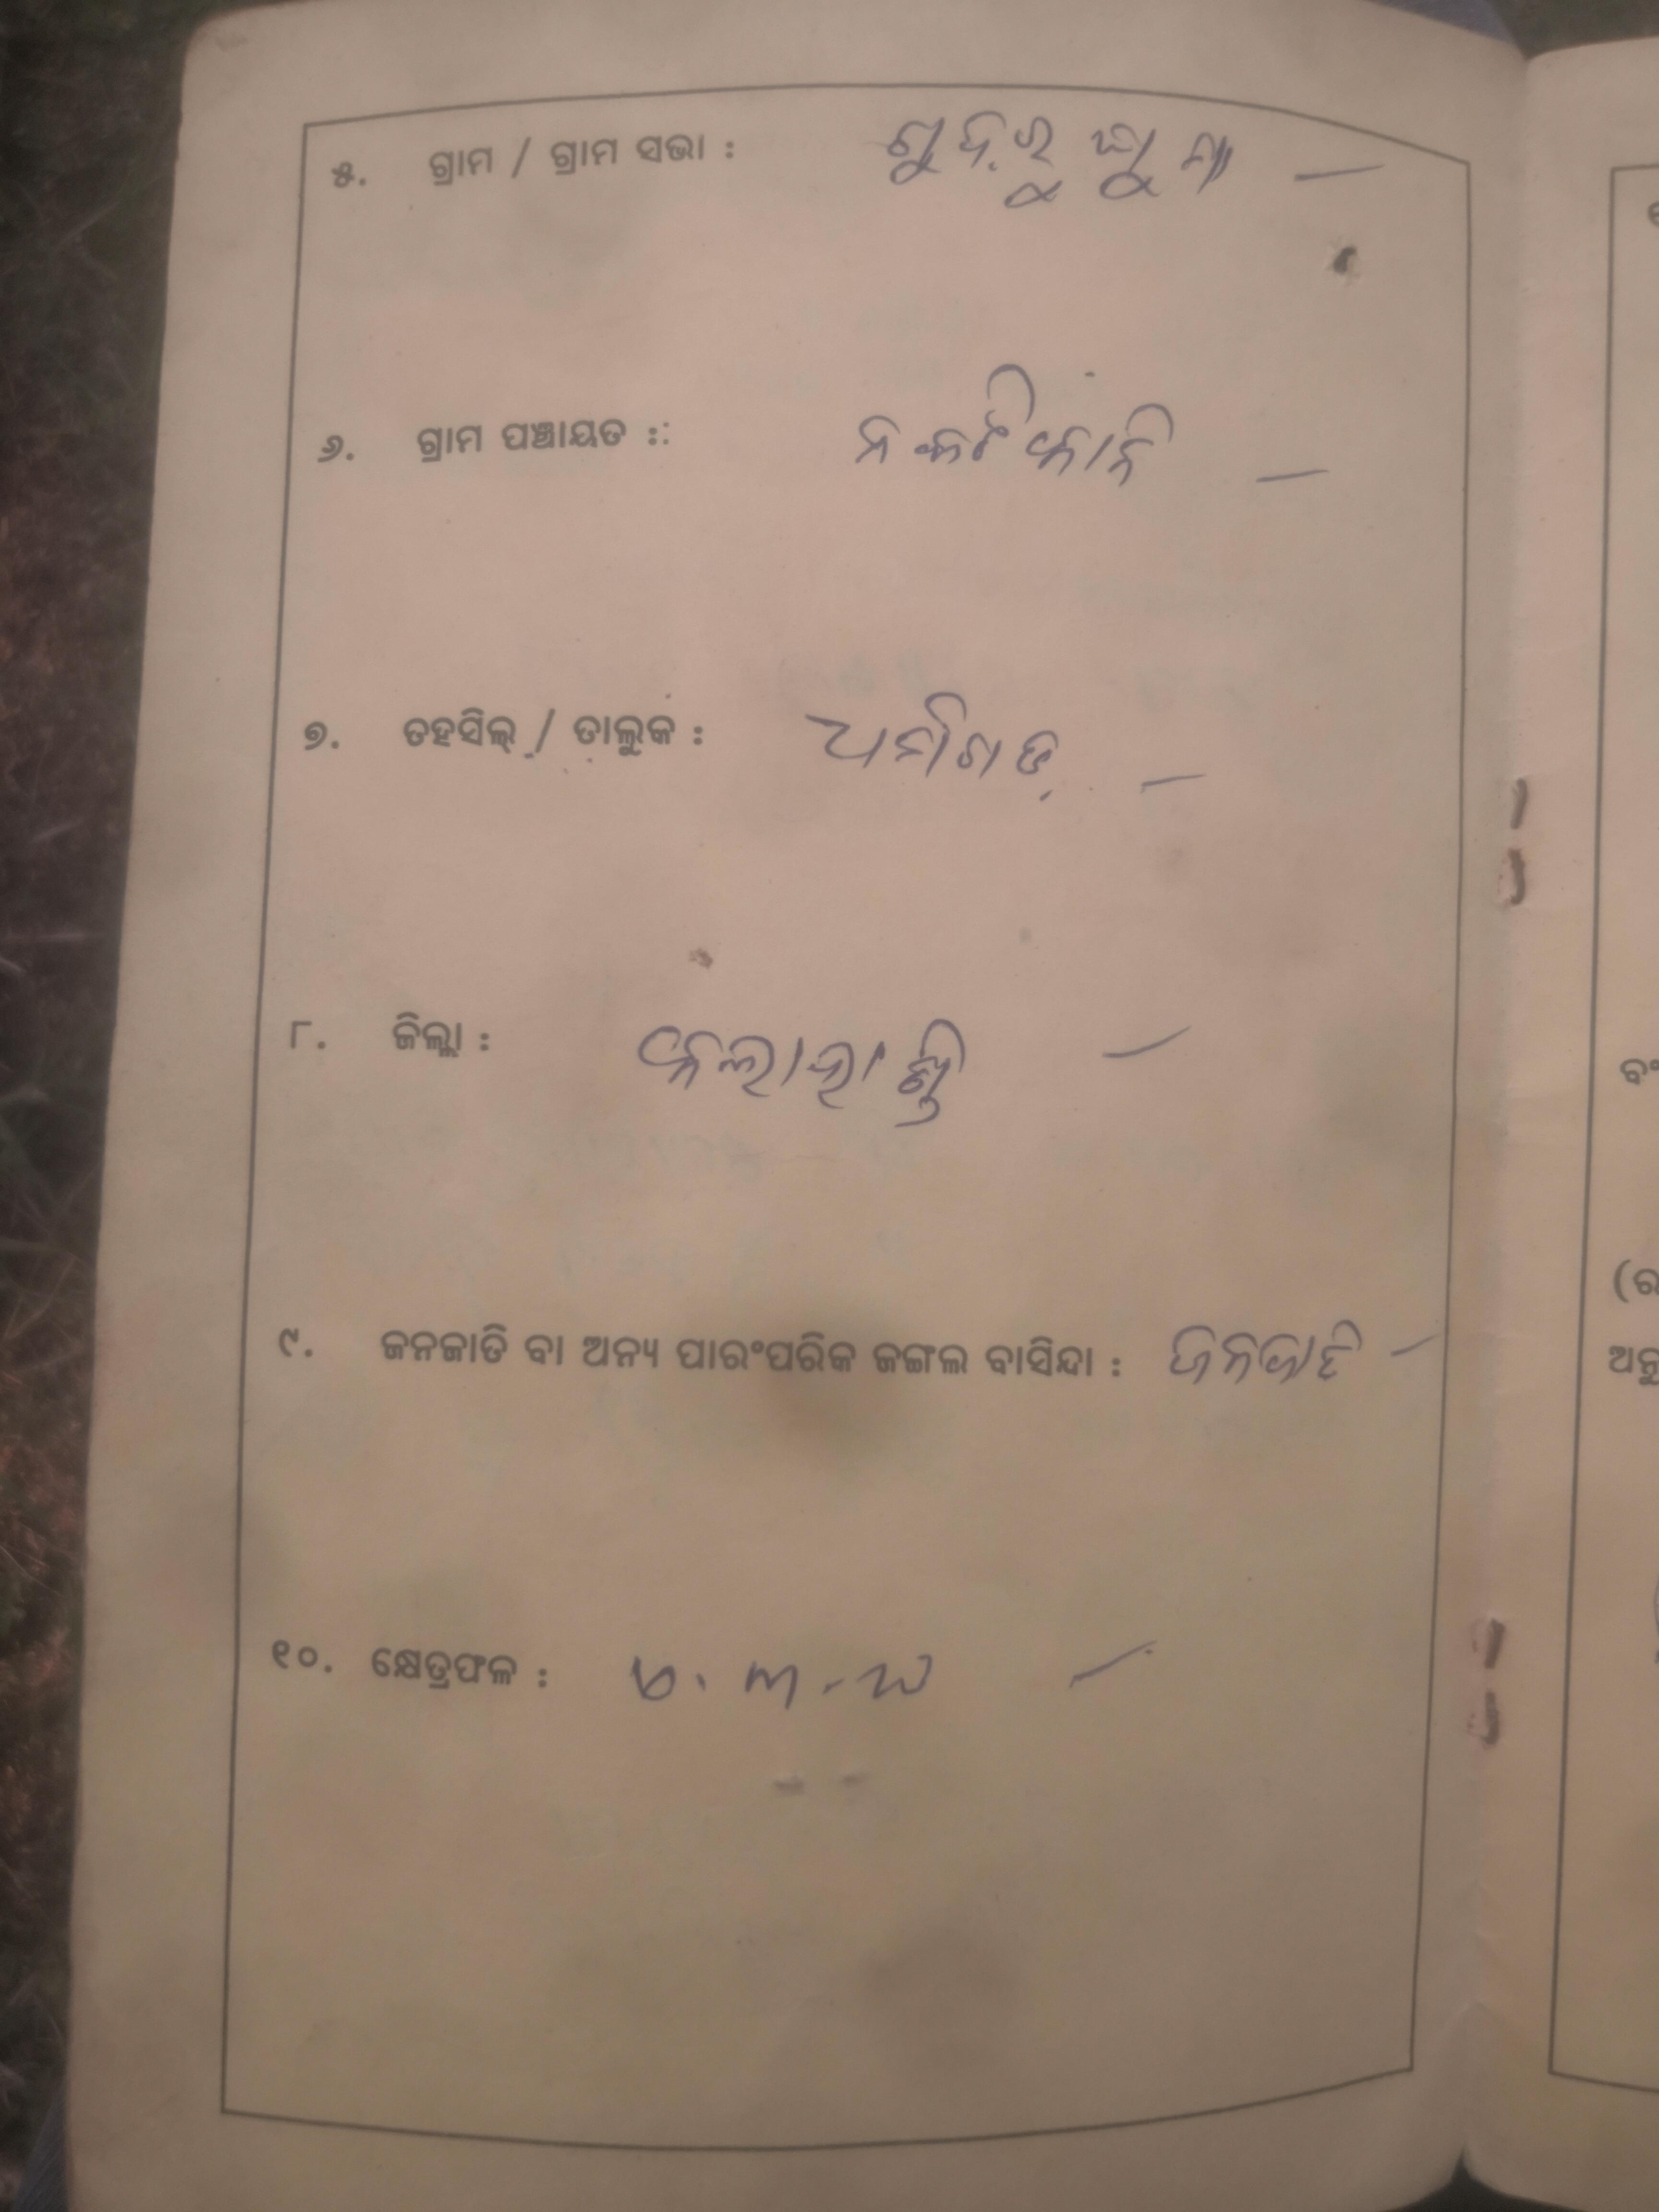 ୫. ଗ୍ରାମ / ଗ୍ରାମ ସଭା :
୬. ଗ୍ରାମ ପଞ୍ଚାୟତ :: ନକଟିକାନି —
୭. ତହସିଲ୍ / ତାଲୁକ :
୮. ଜିଲ୍ଲା : କଳାହାଣ୍ଡି —
୯. ଜନଜାତି ବା ଅନ୍ୟ ପାରଂପରିକ ଜଙ୍ଗଲ ବାସିନ୍ଦା : ଜନଜାତି —
୧୦. କ୍ଷେତ୍ରଫଳ :
ବଂ
(ର
ଅନୁ